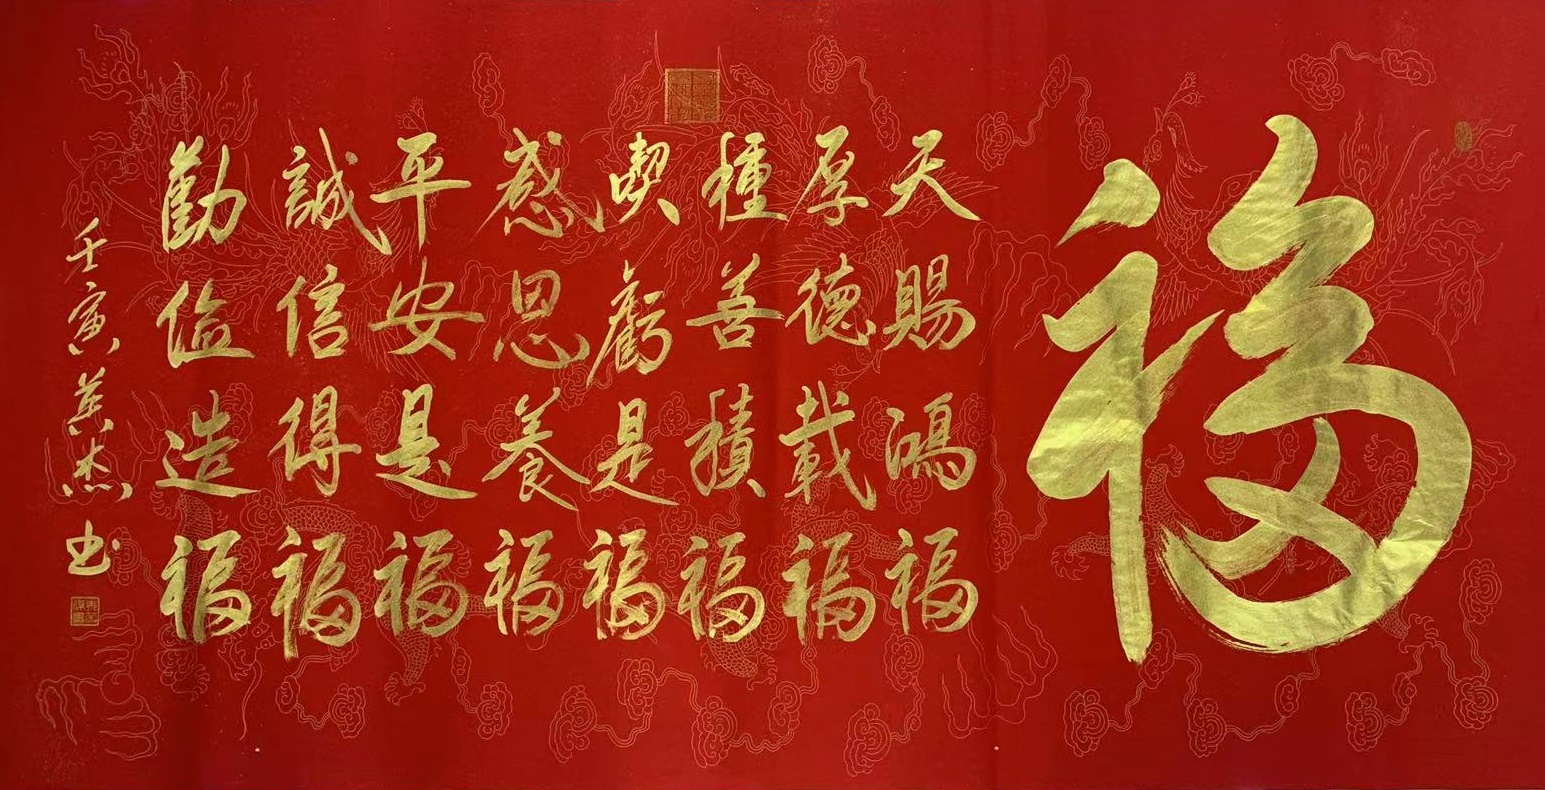 福
天賜鴻福
厚德載福
種善積福
喫虧是福
感恩養福
平安是福
誠信得福
勤儉造福
壬寅英杰书